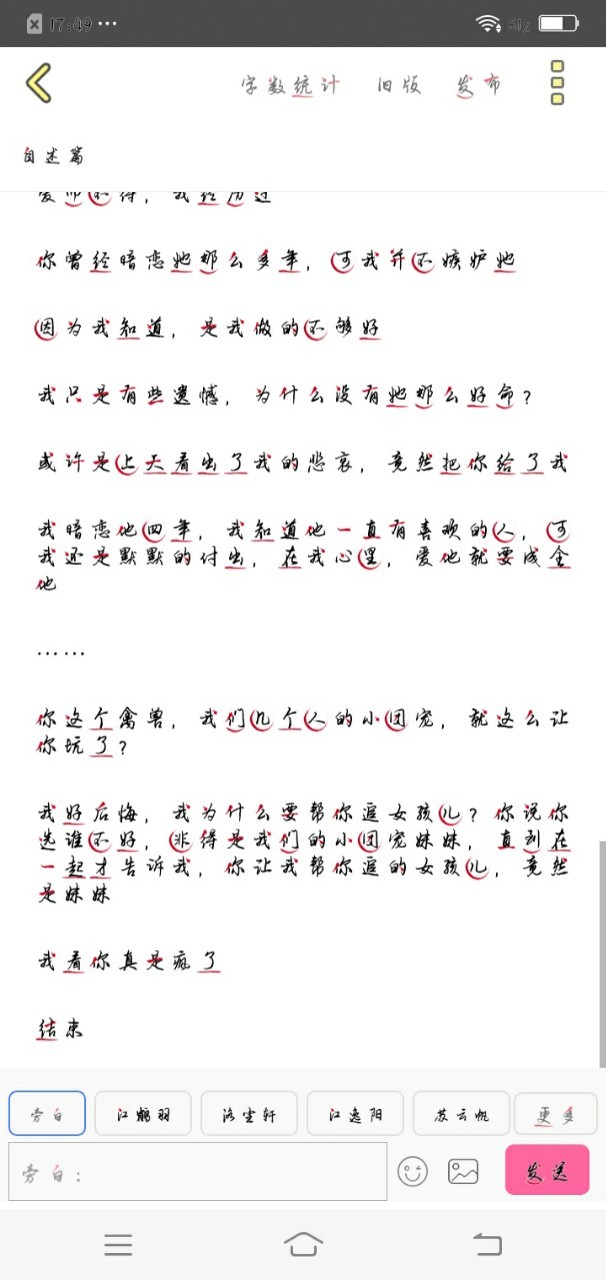 17:49
字数统计 旧版 发布
自述篇
爱而不得，我经历过
你曾经暗恋她那么多年，可我并不嫉妒她
因为我知道，是我做的不够好
我只是有些遗憾，为什么没有她那么好命？
或许是上天看出了我的悲哀，竟然把你给了我
我暗恋他四年，我知道他一直有喜欢的人，可
我还是默默的付出，在我心里，爱他就要成全
他
……
你这个禽兽，我们几个人的小团宠，就这么让
你玩了？
我好后悔，我为什么要帮你追女孩儿？你说你
选谁不好，非得是我们的小团宠妹妹，直到在
一起才告诉我，你让我帮你追的女孩儿，竟然
是妹妹
我看你真是疯了
结束
旁白 江鹤羽 洛尘轩 江逸阳 苏云帆 更多
旁白：
发送